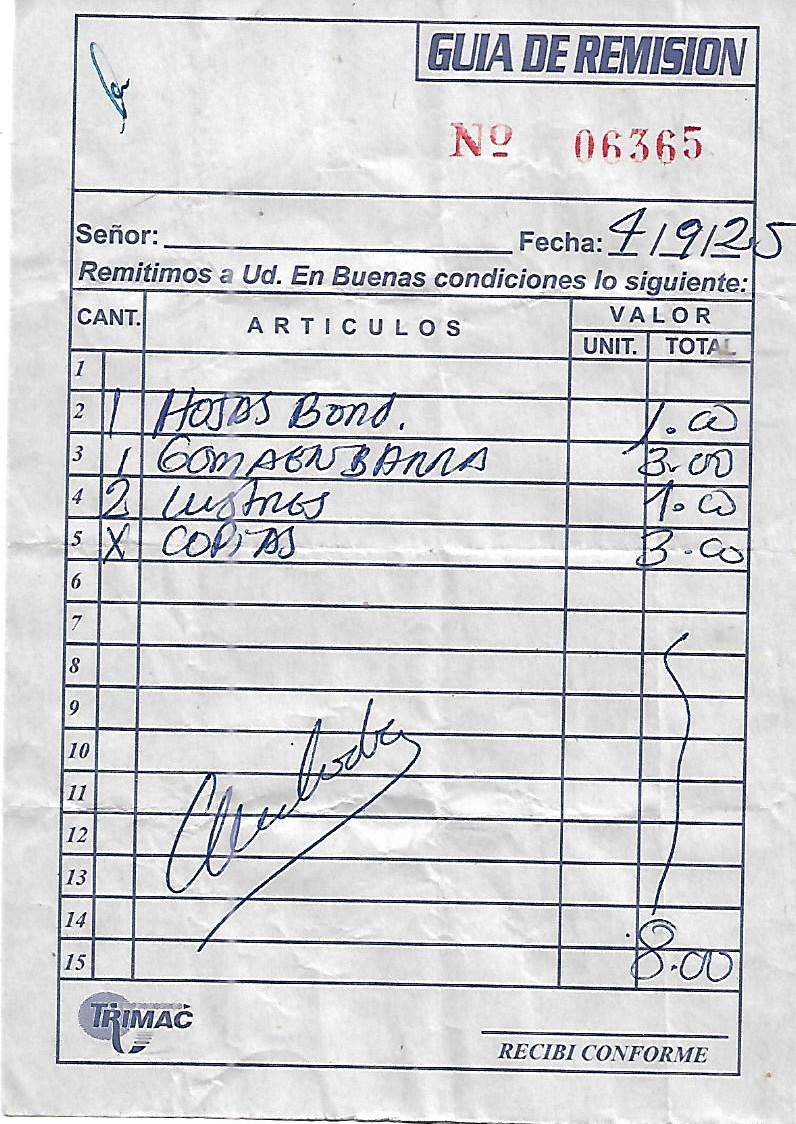 GUIA DE REMISION
Nº 06365
Señor: Fecha: 4/9/25
Remitimos a Ud. En Buenas condiciones lo siguiente:
CANT. ARTICULOS VALOR
UNIT. TOTAL
1
2 1 HOJAS BOND. 1.00
3 1 GOMA EN BARRA 3.00
4 2 LUSTRES 1.00
5 X COPIAS 3.00
6
7
8
9
10
11
12
13
14
15 8.00
TRIMAC
RECIBI CONFORME